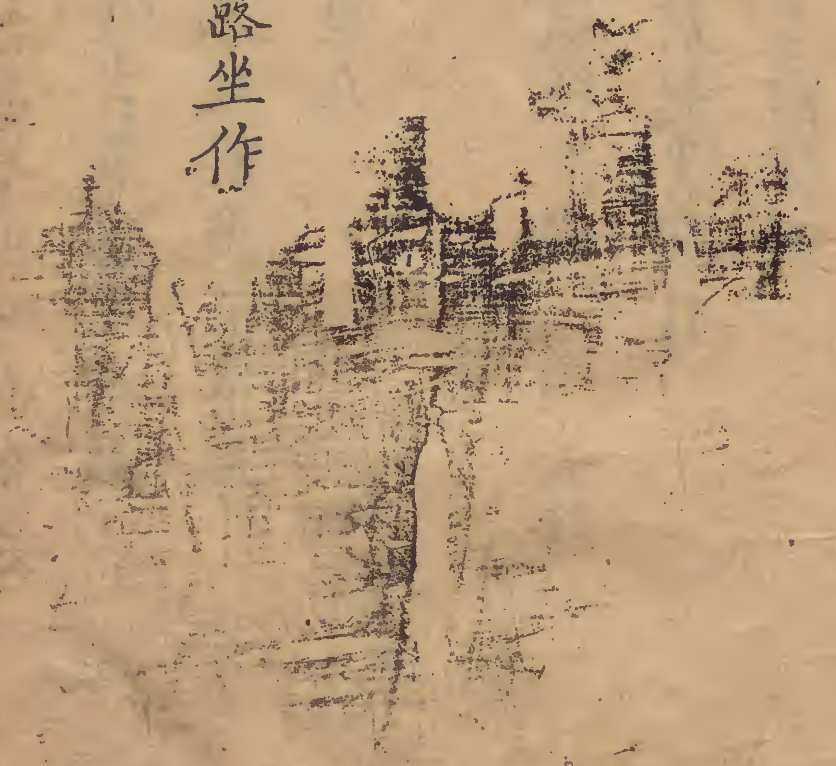 路坐作